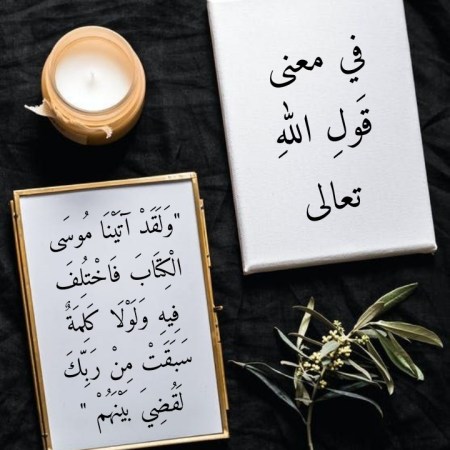 في معنى
قَولِ اللهِ
تعالى
"وَلَقَدْ آتَيْنَا مُوسَى
الْكِتَابَ فَاخْتُلِفَ
فِيهِ وَلَوْلَا كَلِمَةٌ
سَبَقَتْ مِنْ رَبِّكَ
لَقُضِيَ بَيْنَهُمْ "